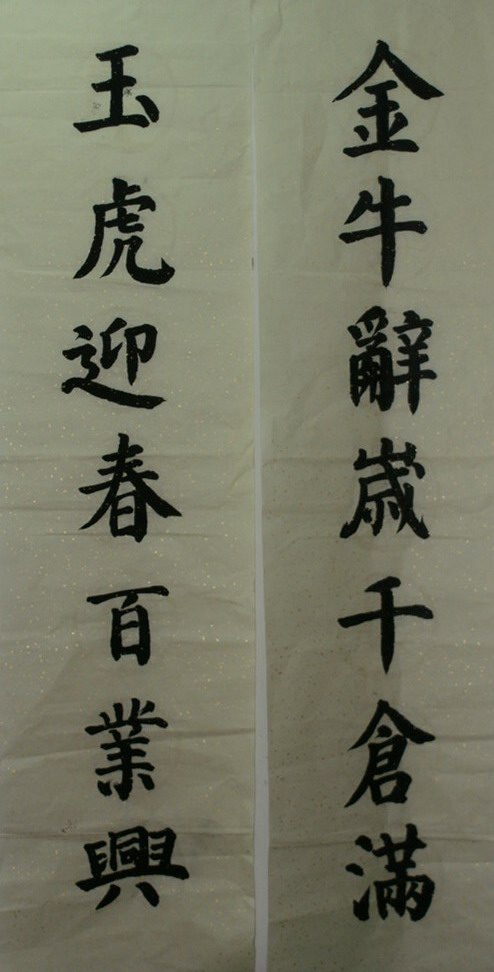 金牛辭歲千倉滿
玉虎迎春百業興